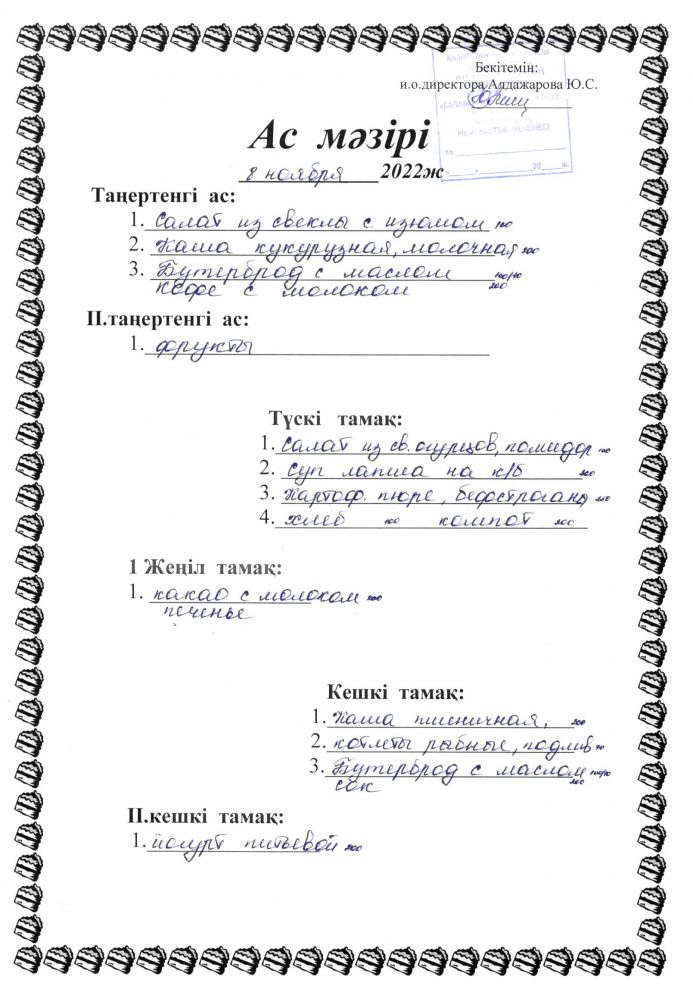 Бекітемін:
и.о.директора Алдажарова Ю.С.
Ас мәзірі
8 ноября 2022ж
Таңертенгі ас:
1. Салат из свеклы с изюмом 100
2. Каша кукурузная, молочная 200
3. Бутерброд с маслом 100/10
кофе с молоком 200
II.таңертенгі ас:
1. фрукты
Түскі тамақ:
1. Салат из св. огурцов, помидор 100
2. Суп лапша на к/б
3. Картоф. пюре, бефстроганы
4. хлеб 100 компот 200
1 Жеңіл тамақ:
1. какао с молоком 200
печенье
Кешкі тамақ:
1. Каша пшеничная, 200
2. котлеты рыбные, подлив
3. Бутерброд с маслом 100/10
сок 200
II.кешкі тамақ:
1. йогурт питьевой 200